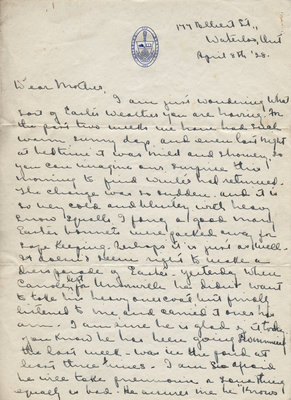 177 Albert St.,
Waterloo, Ont
April 8th '28.
Dear Mother,
I am just wondering what
sort of Easter weather you are having. For
the past two weeks we have had such
warm sunny days, and even last night
at bedtime it was mild and showery so
you can imagine our surprise this
morning to find winter had returned.
The change was so sudden and it is
so very cold and blustry with heavy
snow squalls I fancy a good many
Easter bonnets were packed away for
safe keeping. Perhaps it is just as well.
It doesn't seem right to make a
dress parade of Easter. Yesterday when
Carroll left for he didn't want
to take his heavy overcoat but finally
listened to me and carried it over his
arm. I am sure he is glad of it today.
You know he has been going swimming
the last week - was in the pond at
least three times. I am so afraid
he will take pneumonia or something
equally as bad. He assures me he knows